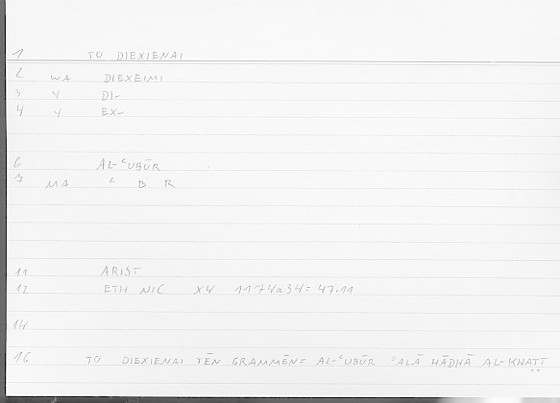 1 TO DIEXIENAI
2 WA DIEXEIMI
3 Y DI-
4 Y EX-
6 AL-ʿUBŪR
7 MA ʿ B R
11 ARIST
12 ETH NIC X4 1174a34 = 47.11
14
16 TO DIEXIENAI TĒN GRAMMĒN = AL-ʿUBŪR ʿALĀ HĀDHĀ AL-KHAṬṬ